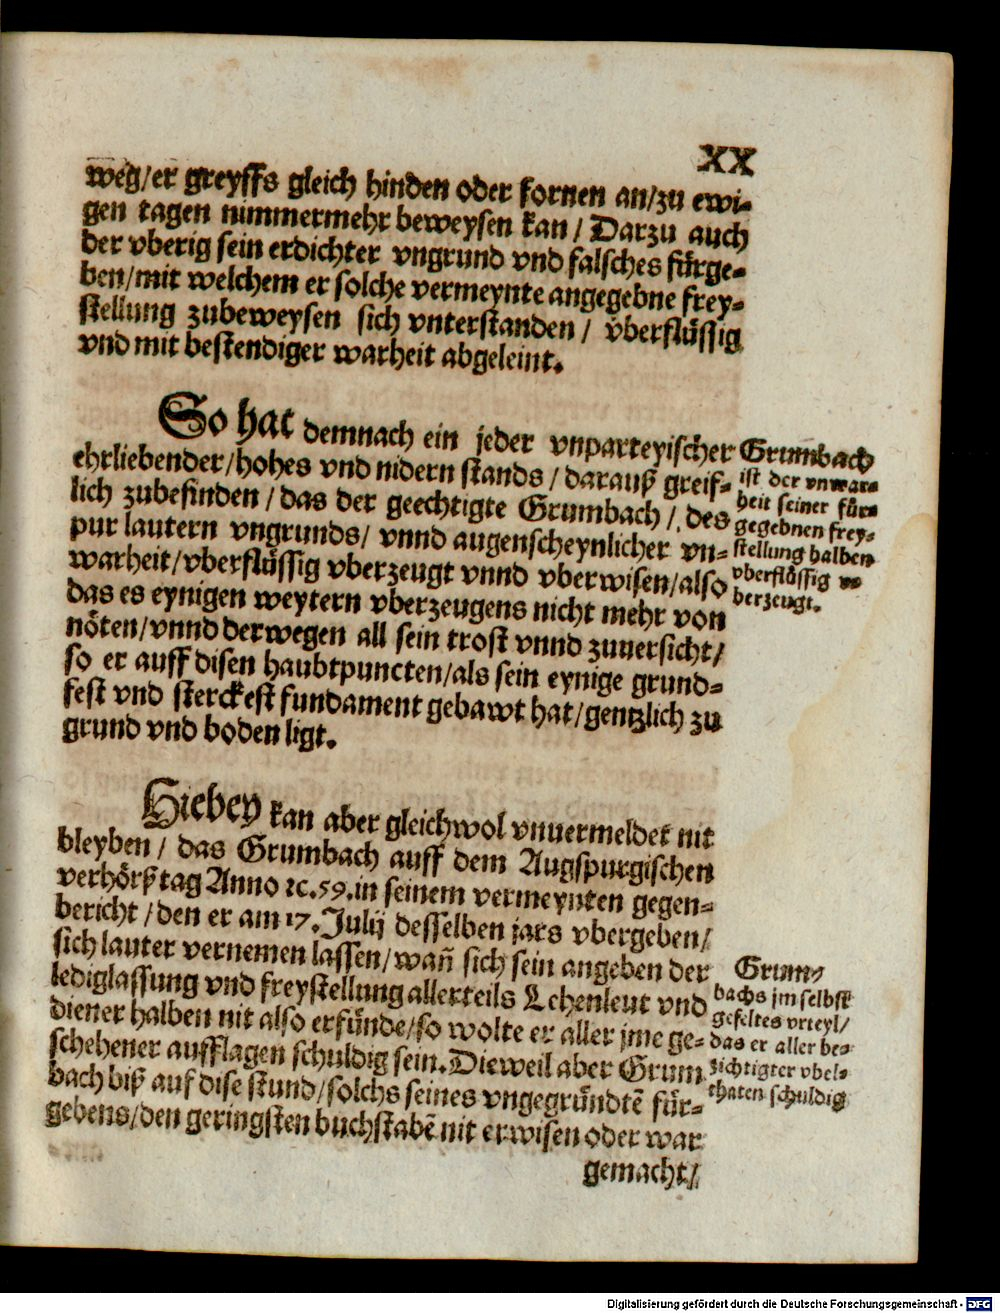 XX
weg/er greyffs gleich hinden oder fornen an/zu ewi-
gen tagen nimmermehr beweysen kan / Darzu auch
der vberig sein erdichter vngrund vnd falsches fürge-
ben/mit welchem er solche vermeynte angegebne frey-
stellung zubeweysen sich vnterstanden / vberflüssig
vnd mit bestendiger warheit abgeleint.
So hat demnach ein jeder vnparteyischer
ehrliebender/hohes vnd nidern stands / darauß greif-
lich zubefinden / das der geechtigte Grumbach / des
pur lautern vngrunds/ vnnd augenscheynlicher vn-
warheit/vberflüssig vberzeugt vnnd vberwisen/also
das es eynigen weytern vberzeugens nicht mehr von
nöten/vnnd derwegen all sein trost vnnd zuuersicht/
so er auff disen haubtpuncten/als sein eynige grund-
fest vnd sterckest fundament gebawt hat/gentzlich zu
grund vnd boden ligt.
Grumbach
ist der vnwar-
heit seiner für-
gegebnen frey-
stellung halben
vberflüssig v-
berzeugt.
Hiebey kan aber gleichwol vnuermeldet nit
bleyben / das Grumbach auff dem Augspurgischen
verhörßtag Anno ꝛc.59.in seinem vermeynten gegen-
bericht /den er am 17.Julij desselben jars vbergeben/
sich lauter vernemen lassen/wañ sich sein angeben der
lediglassung vnd freystellung allerteils Lehenleut vnd
diener halben nit also erfünde/so wolte er aller jme ge-
schehener aufflagen schuldig sein.Dieweil aber Grum
bach biß auf dise stund/solchs seines vngegründtẽ für-
gebens/den geringsten buchstabẽ nit erwisen oder war
gemacht/
Grum-
bachs jm selbst
gefeltes vrteyl/
das er aller be-
zichtigter vbel-
thaten schuldig
Digitalisierung gefördert durch die Deutsche Forschungsgemeinschaft - DFG